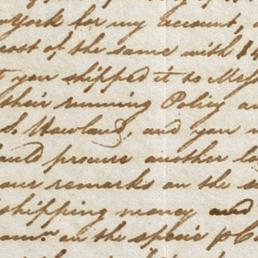 York for my account, a
cost of the same with $4
t you shipped it to Mess
their running Policy an
S. Howland, and you m
ould procure another lo
our remarks on the su
shipping money and
on the specie p